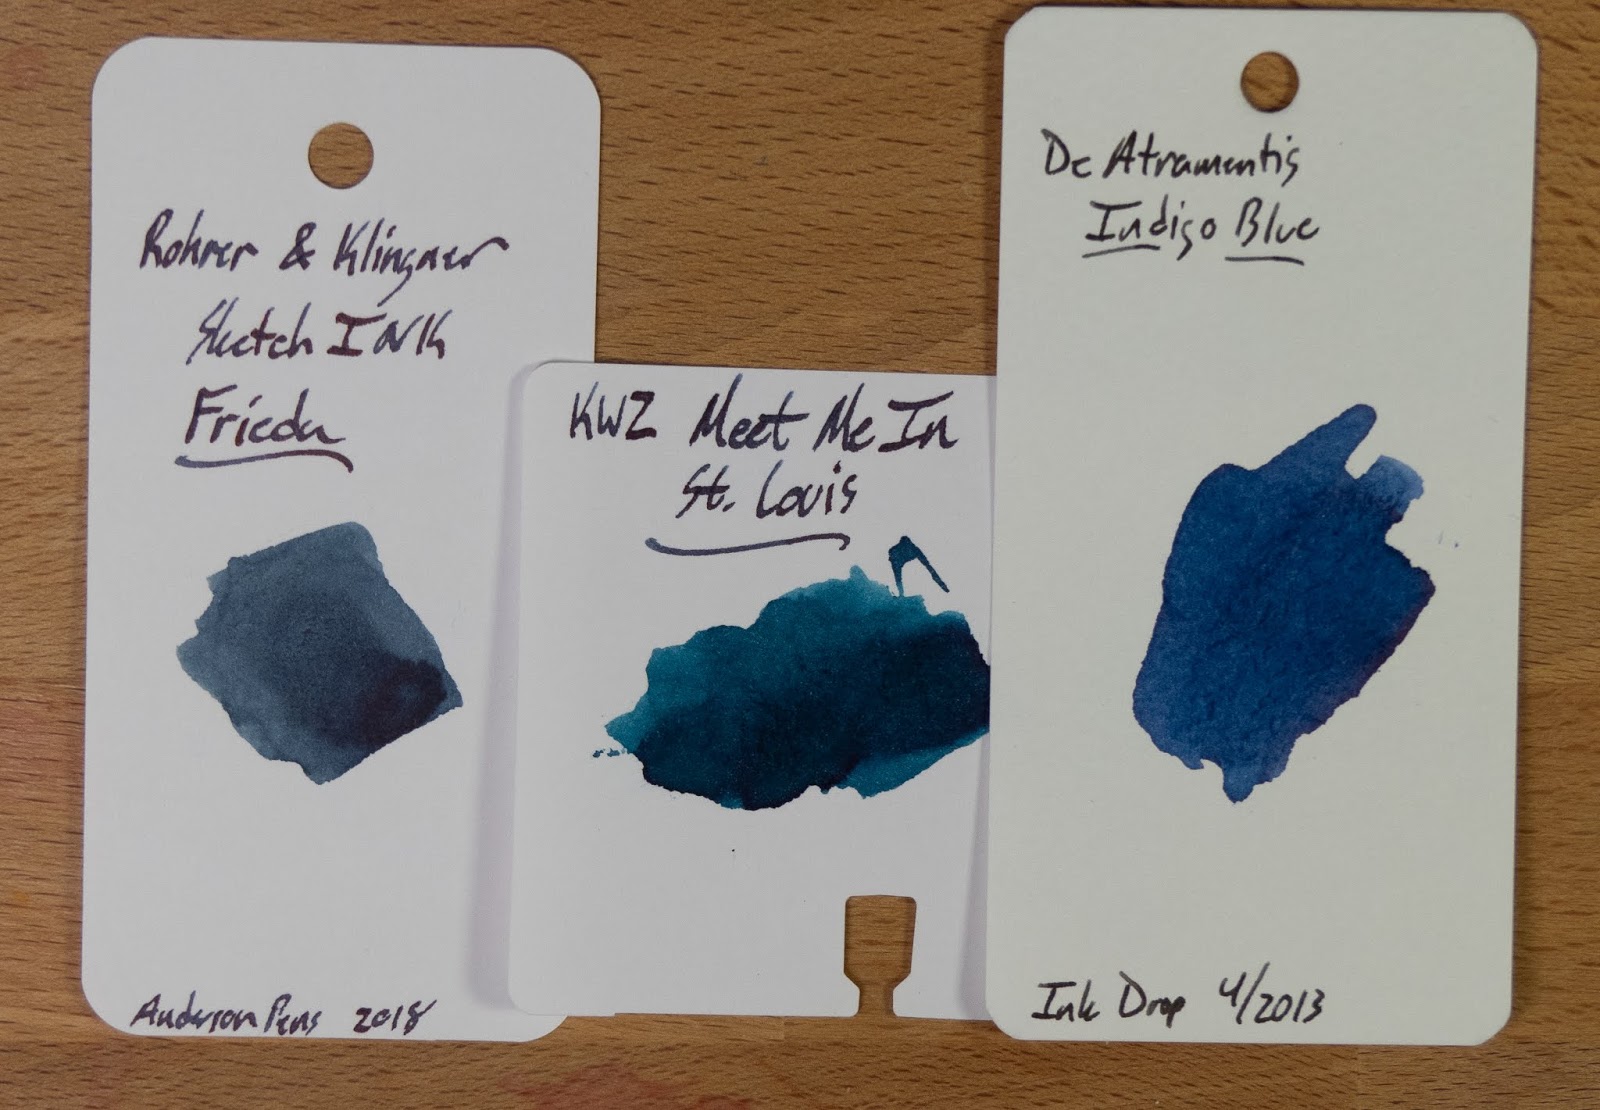 Rohrer & Klingner
Sketch INK
Frieda
Anderson Pens 2018
KWZ Meet Me In
St. Louis
De Atramentis
Indigo Blue
Ink Drop 4/2013